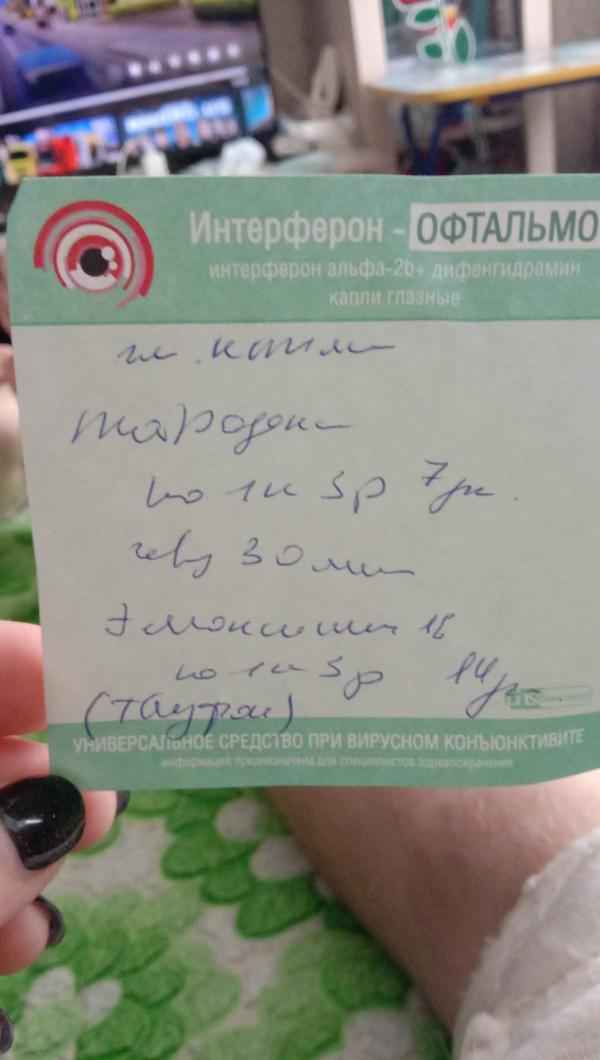 Интерферон - ОФТАЛЬМО
интерферон альфа-2b+ дифенгидрамин
капли глазные
гл. капли
по 1к 3р 7дн.
30 мин
Эмоксипин 1%
по 1к 3р 14дн
(Таурин)
УНИВЕРСАЛЬНОЕ СРЕДСТВО ПРИ ВИРУСНОМ КОНЪЮНКТИВИТЕ
информация предназначена для специалистов здравоохранения